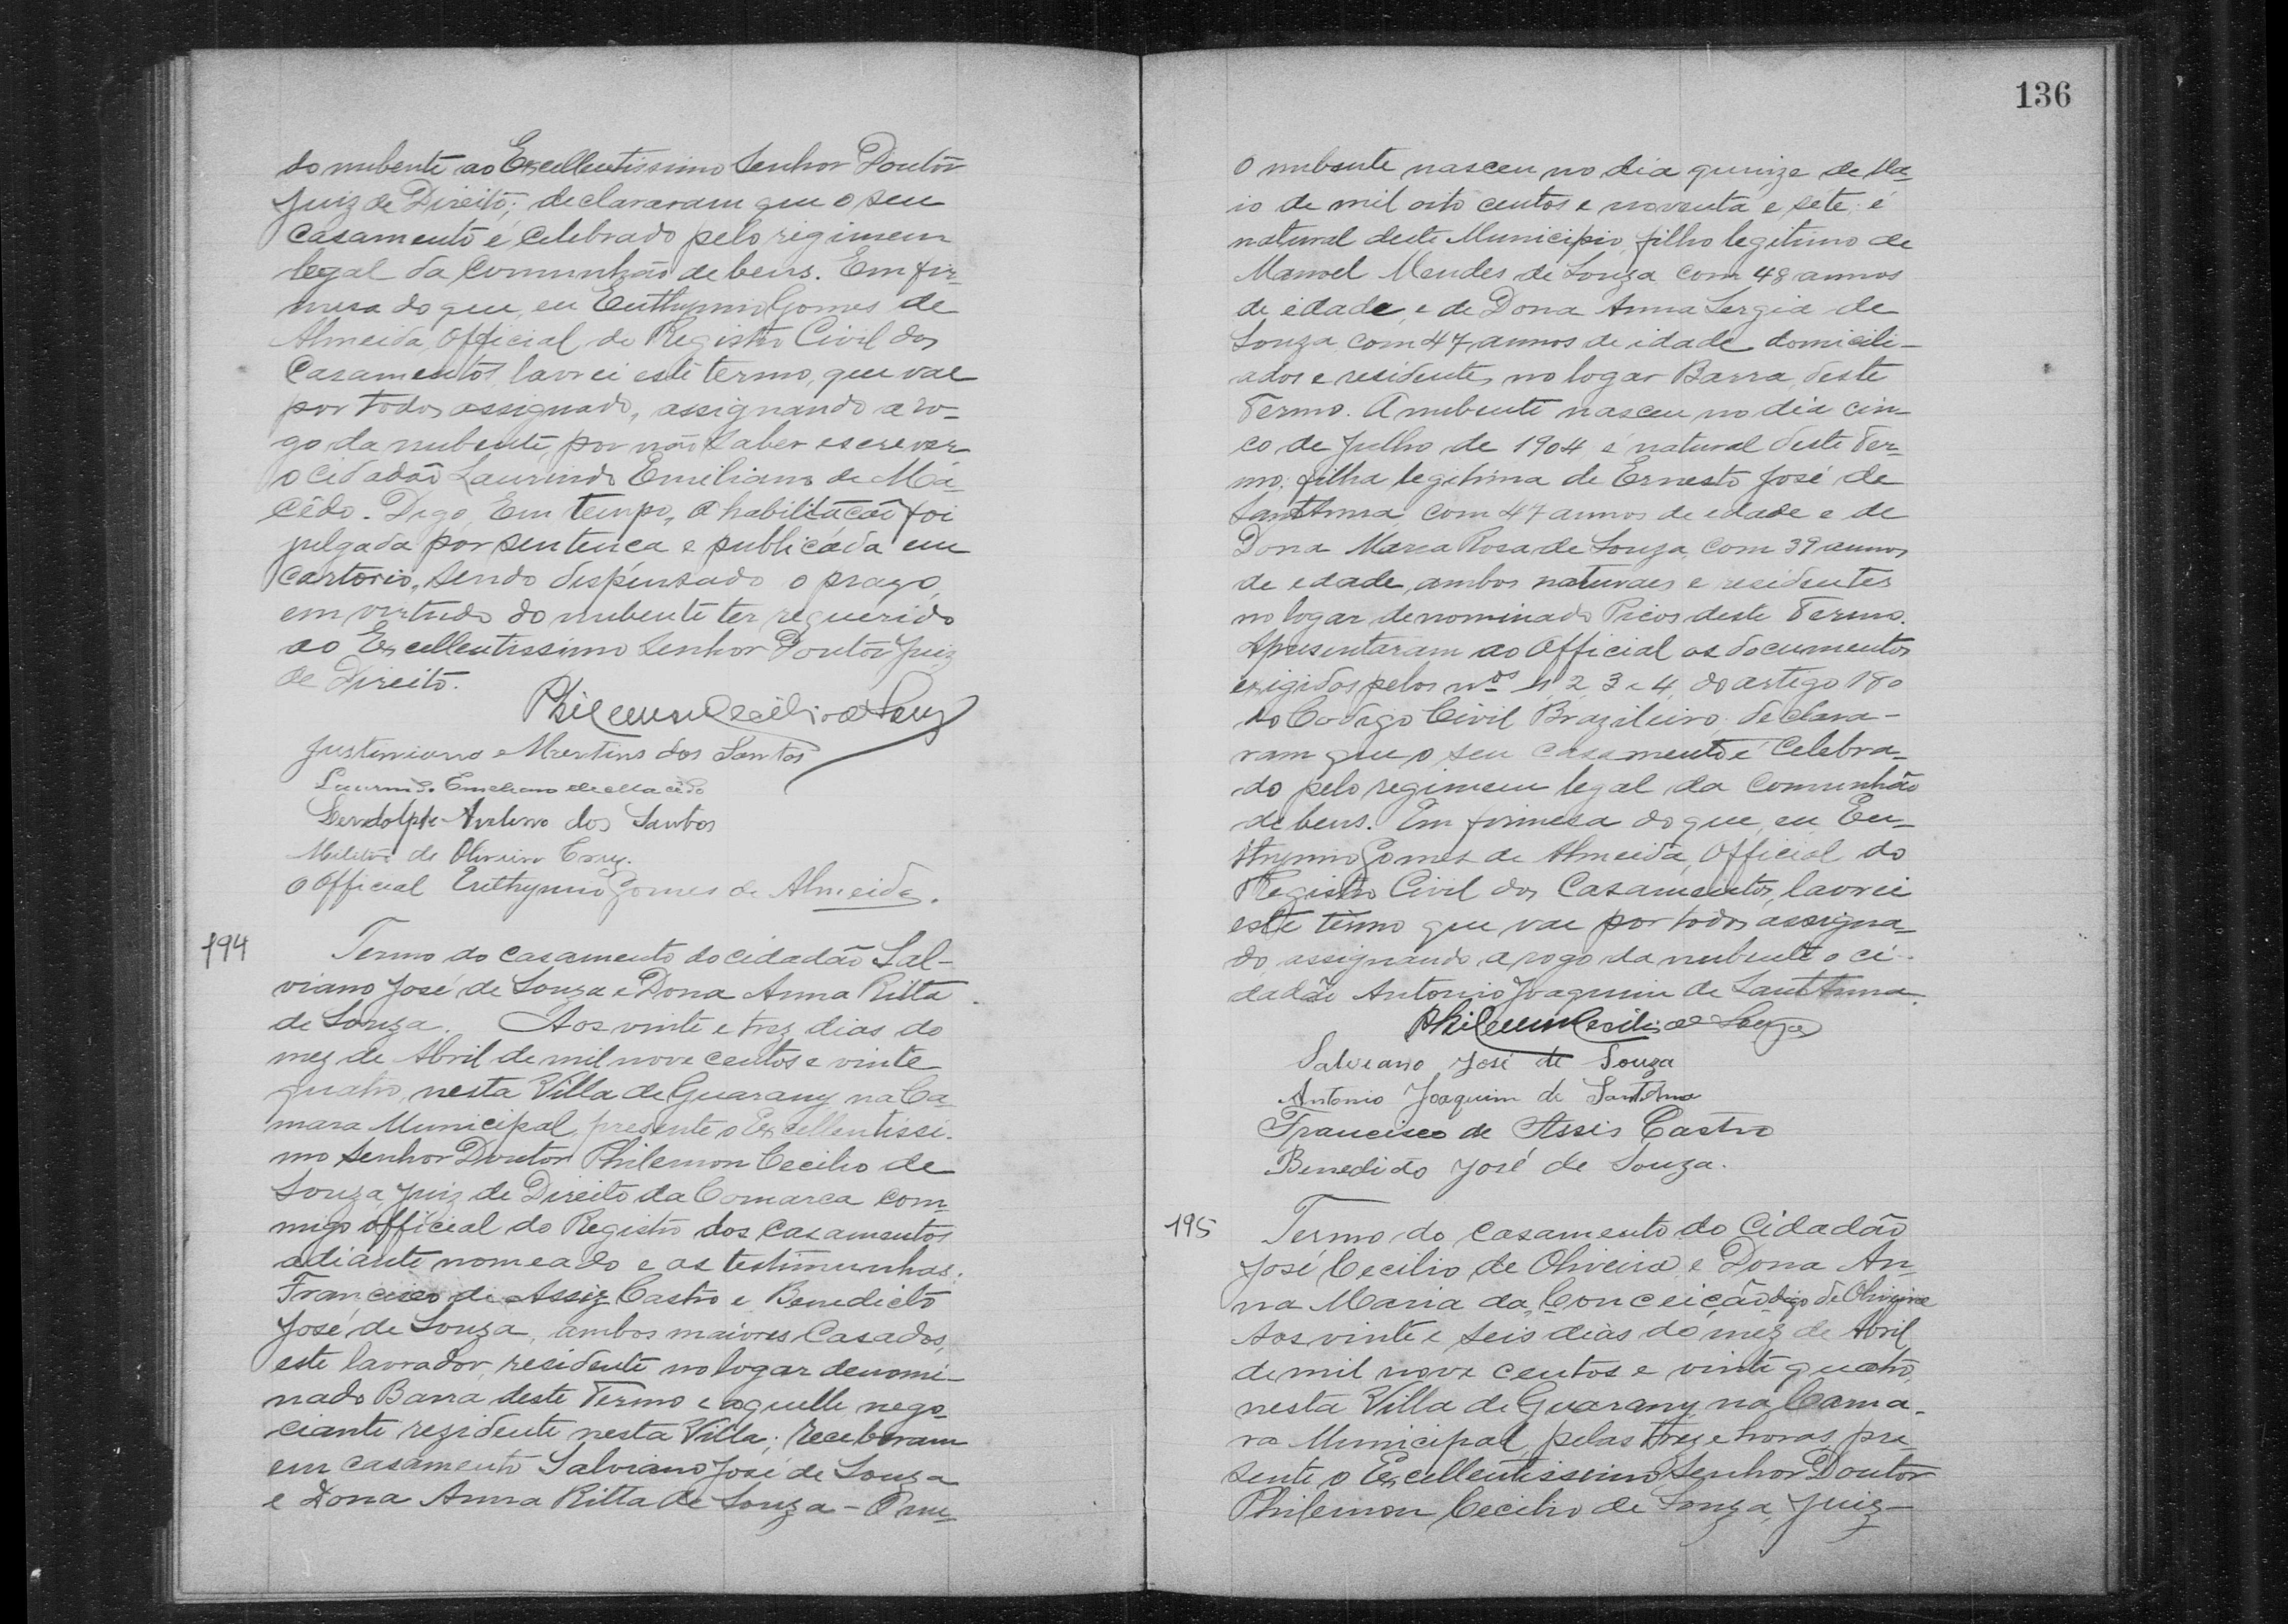 do nubente ao Excellentissimo Senhor Doutôr
Juiz de Direito; declararam que o seu
casamento é celebrado pelo regimem
legal da communhão de bens. Em fir-
mesa do que, eu Euthymio Gomes de
Almeida, official do Registro Civil dos
Casamentos, lavrei este termo, que vae
por todos assignado, assignando a ro-
go da nubente, por não saber escrever
o cidadão Laurindo Emiliano de Ma-
cêdo. Digo, Em tempo, a habilitacão foi
julgada por sentenca e publicada em
cartorio, sendo dispensado o praso,
em virtude do nubente ter requerido
ao Excellentissimo Senhor Doutôr Juiz
de Direito.
Philemon Cecilio de Souz
Justiniano Martins dos Santos
Laurindo Emeliano de Macêdo
Lendolpho Avelino dos Santos
Militão de Oliveira Cruz.
O Official Euthymio Gomes de Almeida.
194
Termo do casamento do cidadão Sal-
viano José de Souza e Dona Anna Ritta
de Souza. Aos vinte e trez dias do
mez de Abril de mil nove centos e vinte
quatro, nesta Villa de Guarany na Ca-
mara Municipal, presente o Excellentissi-
mo Senhor Doutor Philemon Cecilio de
Souza, Juiz de Direito da Comarca com-
migo official do Registro dos casamentos
adiante nomeado e as testimunhas:
Francisco de Assiz Castro e Benedicto
José de Souza, ambos maiores casados,
este lavrador, residente no logar denomi-
nado Barra deste Termo e aquelle nego-
ciante rezidente nesta Villa; receberam
em casamento Salviano José de Souza
e Dona Anna Ritta de Souza - O nu-
136
O nubente nasceu no dia quinze de Ma-
io de mil oito centos e noventa e sete; é
natural deste Municipio, filho legitimo de
Manoel Mendes de Souza com 48 annos
de idade, e de Dona Anna Sergia de
Souza, com 47 annos de idade domicili-
ados e residentes no logar Barra, deste
Termo. A nubente nasceu no dia cin-
co de Julho de 1904 é natural deste Ter-
mo; filha legitima de Ernesto José de
Sant'Anna, com 47 annos de edade e de
Dona Maria Rosa de Souza, com 39 annos
de edade, ambos naturaes e residentes
no logar denominado Picos deste Termo.
Apresentaram ao Official os documentos
exigidos pelos nos 1, 2, 3 e 4, do artigo 180
do Codigo Civil Brazileiro; declara-
ram que o seu casamento é celebra-
do pelo regimem legal da Comunhão
de bens. Em firmesa do que, eu, Eu-
thymio Gomes de Almeida, Official do
Registro Civil dos Casamentos, lavrei
este termo que vae por todos assigna-
do, assignando a rogo da nubente o ci-
dadão Antonio Joaquim de Sant'Anna.
Philemon Cecilio de Souza
Salviano José de Souza
Antonio Joaquim de Sant'Anna
Francisco de Assis Castro
Benedito José de Souza.
195
Termo do casamento do Cidadão
José Cecilio de Oliveira e Dona An-
na Maria da Conceição, digo de Oliveira
Aos vinte e seis dias do mez de Abril
de mil nove centos e vinte quatro,
nesta Villa de Guarany, na Cama-
ra Municipal, pelas treze horas, pre-
sente o Excellentissimo Senhor Doutor
Philemon Cecilio de Souza, Juiz-